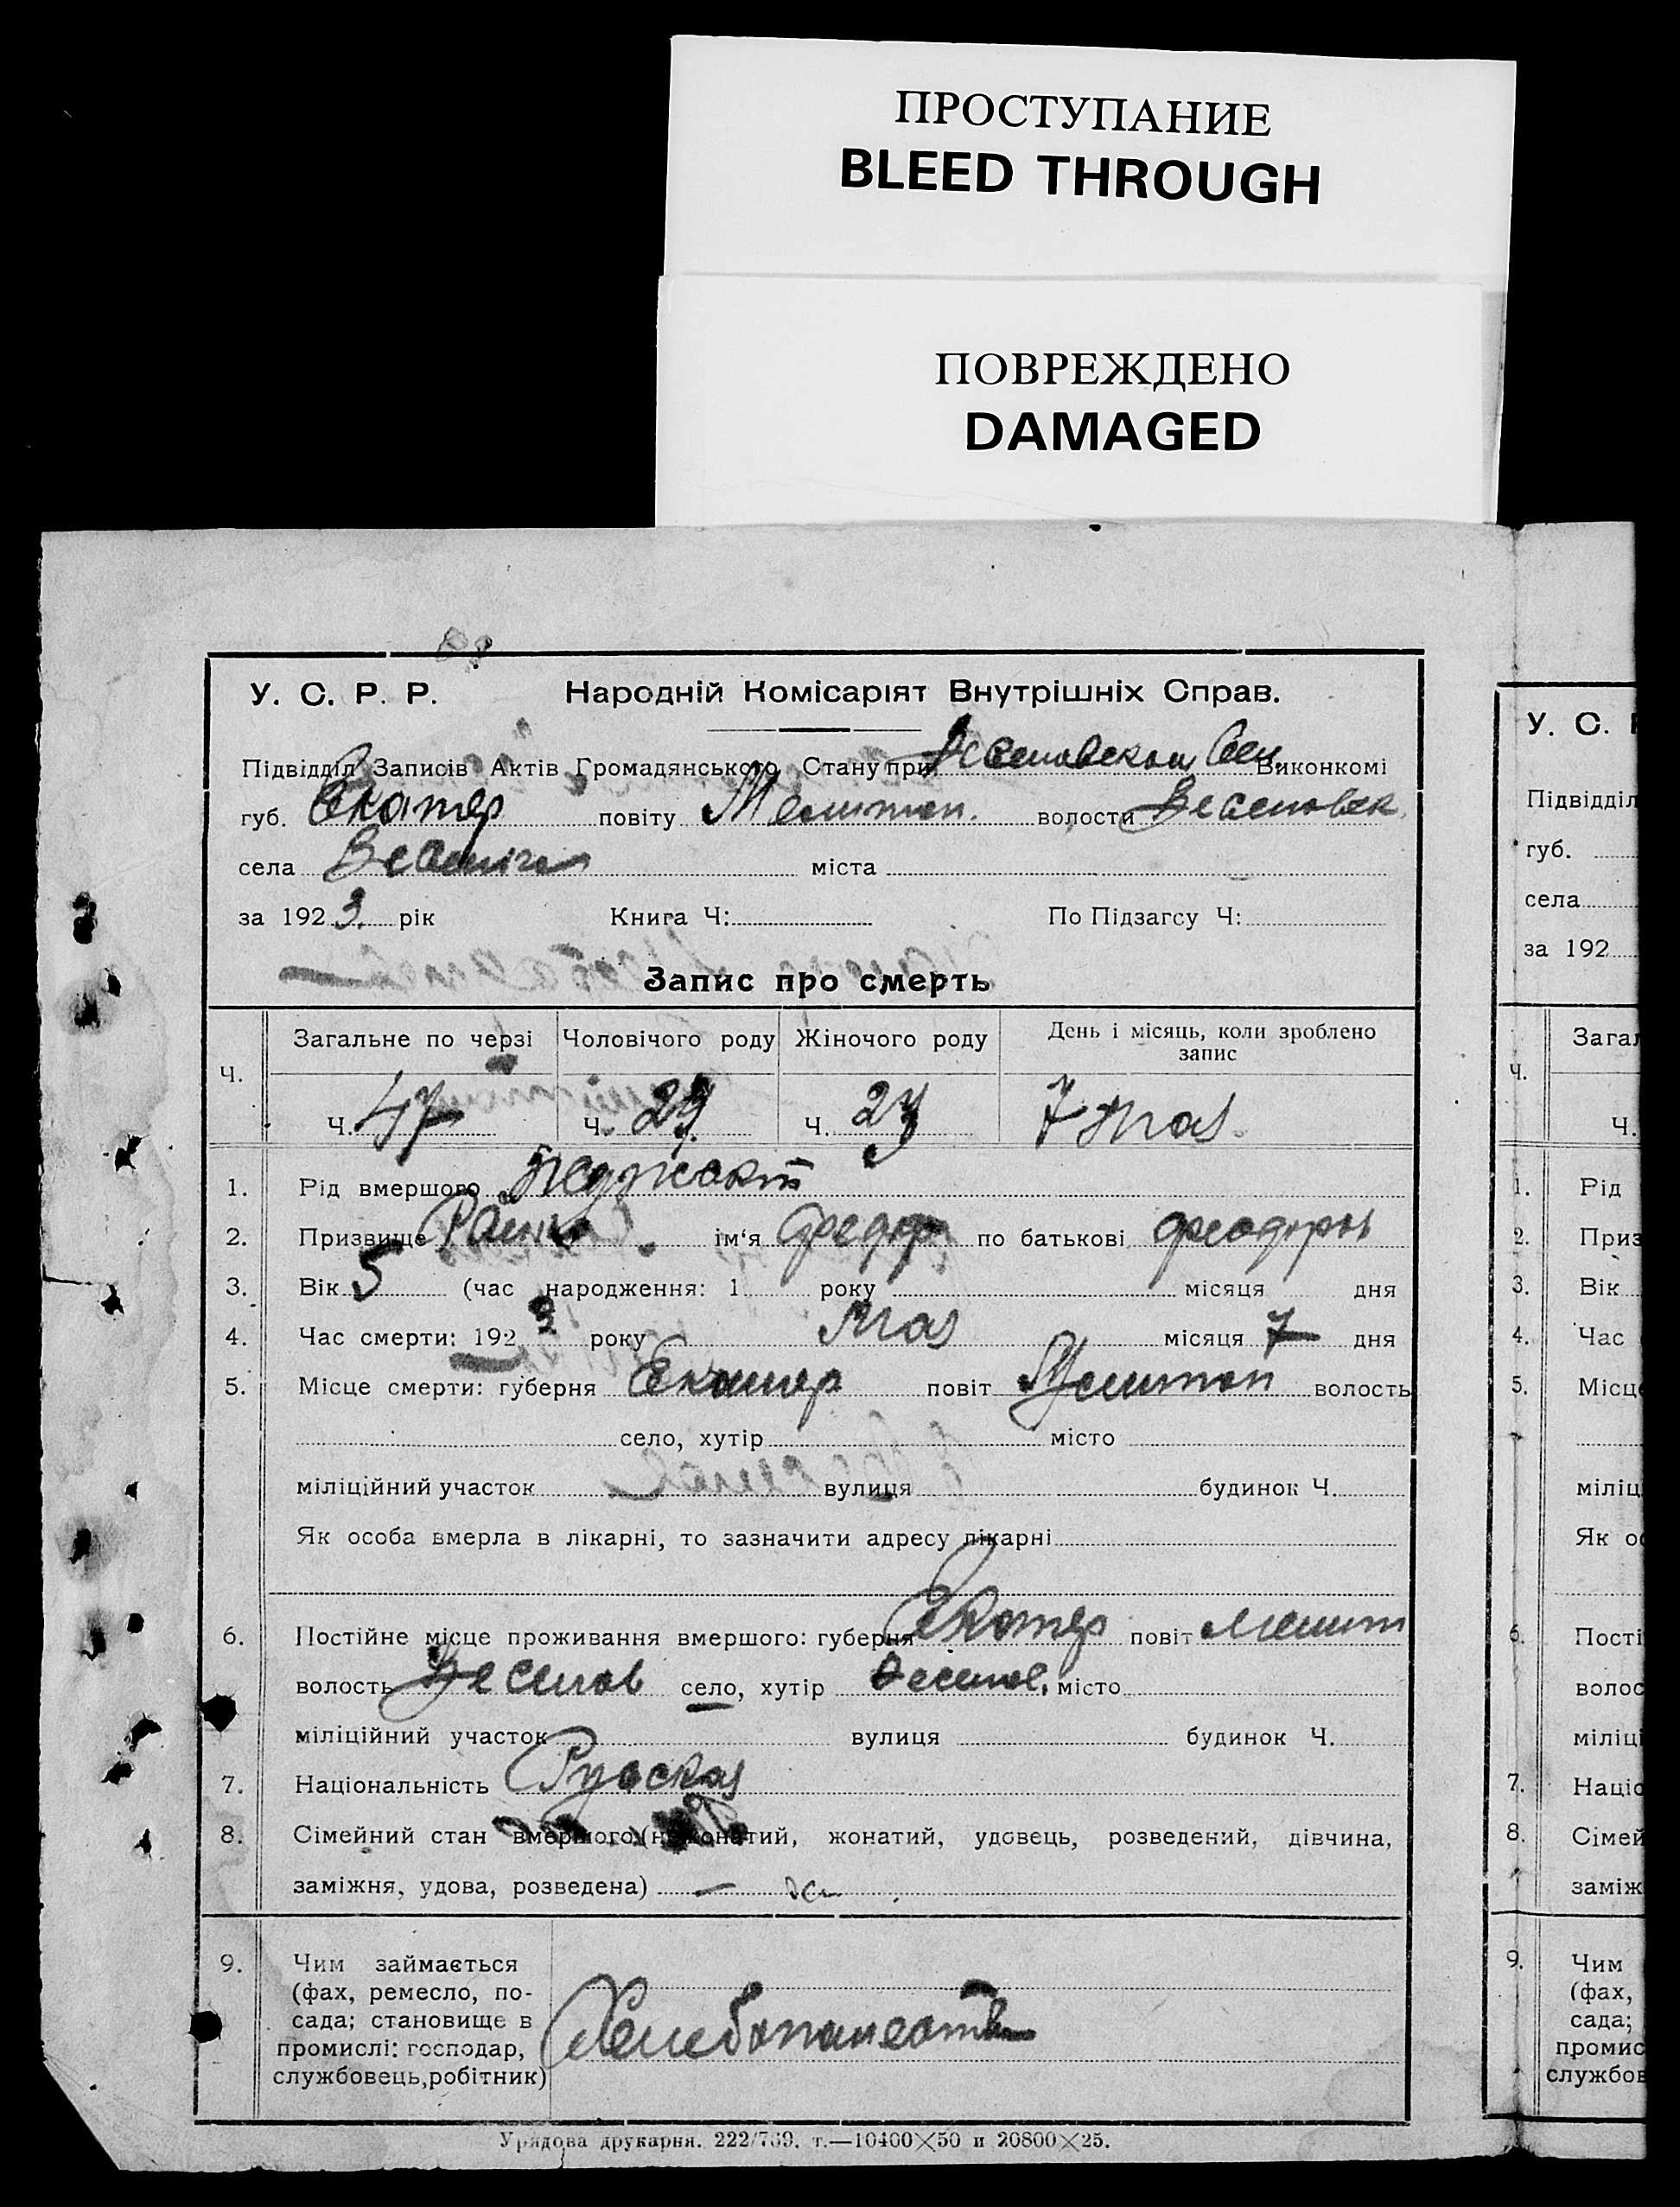 ПРОСТУПАНИЕ
BLEED THROUGH
ПОВРЕЖДЕНО
DAMAGED
У. С. Р. Р. Народній Комісаріят Внутрішніх Справ.
Підвідділ Записів Актів Громадянського Стану при Виконкомі
губ. Екатер повіту Мелитоп. волости Веселовск.
села міста
за 1923. рік Книга Ч: По Підзагсу Ч:
Запис про смерть
Ч. Загальне по черзі Чоловічого роду Жіночого роду День і місяць, коли зроблено
запис
Ч. 47 Ч. Ч. 23 7 Мая
1. Рід вмершого
2. Призвище ім‘я Федор по батькові
3. Вік 5 (час народження: 1 року місяця дня
4. Час смерти: 1923 року Мая місяця 7 дня
5. Місце смерти: губерня Екатер повіт Мелитоп волость
село, хутір місто
міліційний участок вулиця будинок Ч.
Як особа вмерла в лікарні, то зазначити адресу лікарні
6. Постійне місце проживання вмершого: губерня Екатер повіт Мелит
волость Веселов село, хутір Веселов. місто
міліційний участок вулиця будинок Ч.
7. Національність Русская
8. Сімейний стан вмершого (нежонатий, жонатий, удовець, розведений, дівчина,
заміжня, удова, розведена) —
9. Чим займається
(фах, ремесло, по-
сада; становище в
промислі: господар,
службовець, робітник)
Хлебопашество
Урядова друкарня. 222/769. т.—10400×50 и 20800×25.
У. С.
Підвідділ
губ.
села
за 192
Ч.
Ч.
1. Рід
2. Приз
3. Вік
4. Час
5. Місц
міліц
Як о
6. Пості
волос
міліці
7. Націо
8. Сімей
заміж
9. Чим
(фах,
сада;
промис
службов